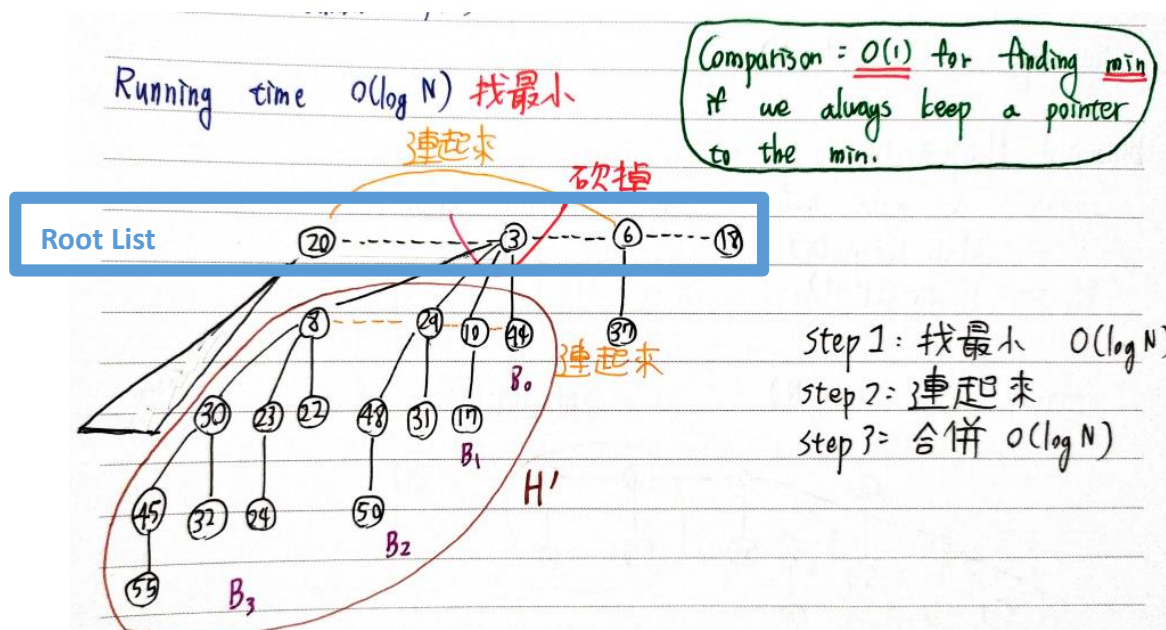 Running time O(log N) 找最小
Comparison = O(1) for finding min
if we always keep a pointer
to the min.
連起來
砍掉
Root List
20 3 6 18
8 29 10 44 37
連起來
B₀
30 23 22 48 31 17
B₁
H'
45 32 24 50
B₂
55
B₃
step 1: 找最小 O(log N)
step 2: 連起來
step 3: 合併 O(log N)